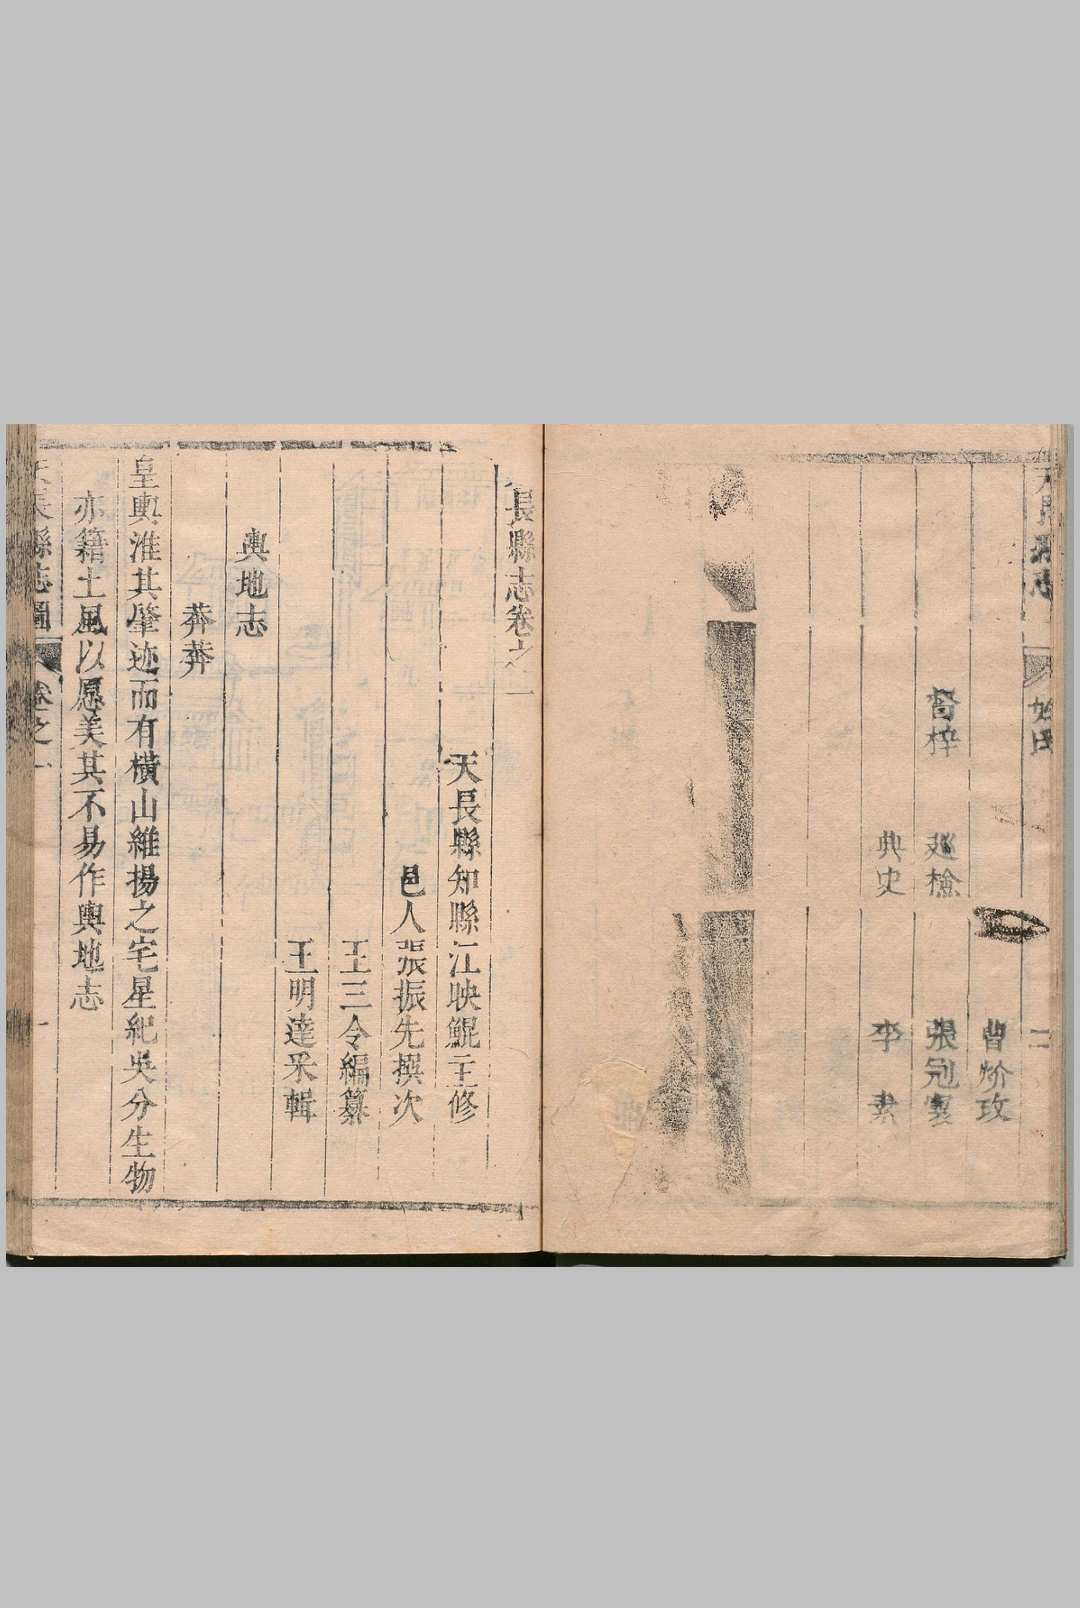 天長縣志
姓氏
二
曹 玠 玫
督梓 巡檢 張冠寰
典史 李 素
天長縣志卷之一
天長縣知縣江映鯤主修
邑人張振先撰次
王三令編纂
王明達采輯
輿地志
莽莽
皇輿淮其肇迹而有橫山維揚之宅星紀吳分生物
亦籍土風以愿美其不易作輿地志
天長縣志圖
卷之一
一